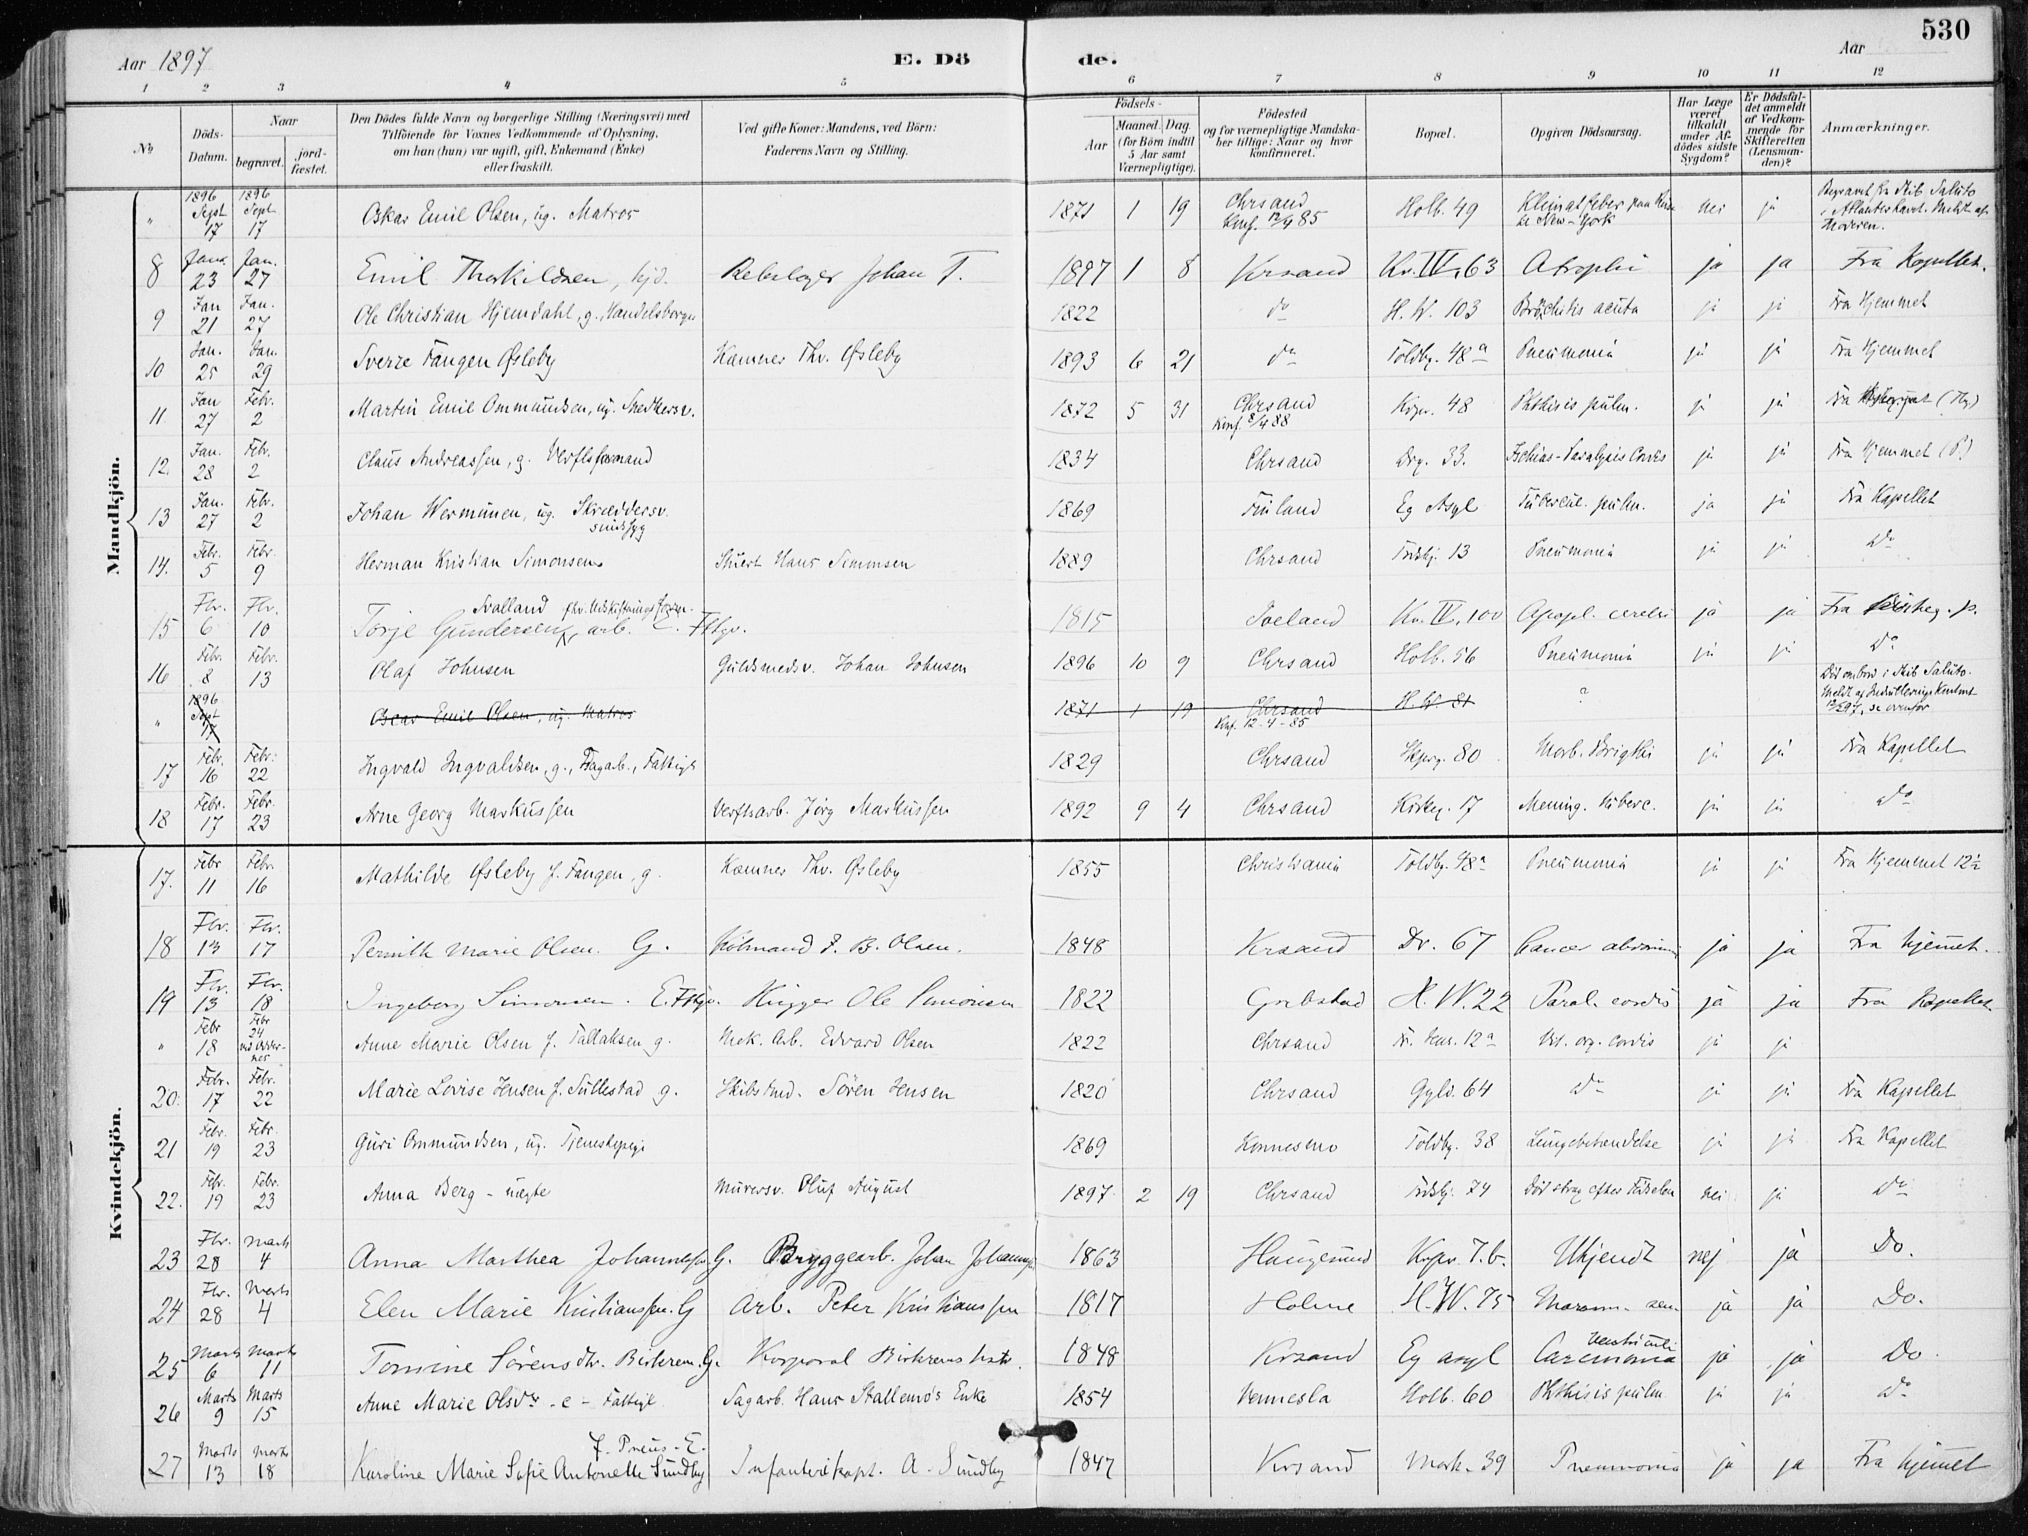 530
Aar 1897
E. Dö
de.
Aar
1 2 3 4 5 6 7 8 9 10 11 12
No
Döds-
Datum.
Naar
begravet.
jord-
fæstet.
Den Dödes fulde Navn og borgerlige Stilling (Næringsvei) med
Tilföiende for Voxnes Vedkommende af Oplysning,
om han (hun) var ugift, gift, Enkemand (Enke)
eller fraskilt.
Ved gifte Koner: Mandens, ved Börn:
Faderens Navn og Stilling.
Födsels-
Aar
Maaned. Dag
(for Börn indtil
5 Aar samt
Værnepligtige).
Födested
og for værnepligtige Mandska-
ber tillige: Naar og hvor
konfirmeret.
Bopæl.
Opgiven Dödsaarsag.
Har Læge
været
tilkaldt
under Af-
dödes sidste
Sygdom?
Er Dödsfal-
det anmeldt
af Vedkom-
mende for
Skifteretten
(Lensman-
den)?
Anmærkninger.
Mandkjön.
" 1896 Sept 17 1896 Sept 17 Oskar Emil Olsen, ug. Matros 1871 1 19 Chrsand Konf. 12/4 85 Holb. 49 Klimatfeber paa New-York nei ja Begravet fra Skib Saluto i Atlanterhavet. Meldt af Moderen.
8 Janr. 23 Jan. 27 Emil Thorkildsen, Rebslager Johan T. 1897 1 8 Krsand Kv. IV, 63 Atrophi ja ja Fra Kapellet.
9 Jan 21 Jan. 27 Ole Christian Hjemdahl, g. Handelsborger 1822 do H. W. 103 Bronchitis acuta ja ja Fra Hjemmet
10 Jan. 25 Jan. 29 Sverre Fangen Øsleby Kæmner Thv. Øsleby 1893 6 21 do Toldbg. 48a Pneumonia ja ja Fra Hjemmet
11 Jan 27 Febr. 2 Martin Emil Ommundsen, ug. Snedkersv. 1872 5 31 Chrsand Konf. 8/4 88 Krpr. 48 Phthisis pulm. ja ja Fra
12. Jan. 28 Febr. 2 Claus Andreassen, g. Verftsformand 1834 Chrsand Drg. 33. Ischias-Paralysis cordis ja ja Fra Hjemmet (P.)
13 Jan. 27 Febr. 2 Johan Wermunen, ug. Skræddersv. sindssyg 1869 Finland Eg Asyl Tubercul. pulm. ja ja Fra Kapellet
14. Febr. 5 Febr. 9 Herman Kristian Simonsen Stuert Hans Simonsen 1889 Chrsand 13 Pneumonia ja ja Do
15 Fbr. 6 Fbr. 10 Torje Gundersen Svalland fhv. Udskiftningsform. arb. E. Fttgv. 1815 Iveland Kv. IV, 100 Apopl. cerebri ja ja Fra
16 Febr. 8 Febr. 13 Olaf Johnsen Guldsmedsv. Johan Johnsen 1896 10 9 Chrsand Holb. 56 Pneumonia ja ja Do
" 1896 Sept 17 Oscar Emil Olsen, ug. Matros 1871 1 19 Chrsand Knf. 12-4-85 H. W 81 ? Död ombord i Skib Saluto. Meldt af Indrulleringskontoret se ovenfor
17 Febr. 16 Febr. 22 Ingvald Ingvaldsen, g., Dagarb., Fattigl. 1829 Chrsand Skprg. 80 Morb. Brigthi ja ja Fra Kapellet
18 Febr. 17 Febr. 23 Arne Georg Markussen Verftsarb. Jörg Markussen 1892 9 4 Chrsand Kirkeg. 17 Mening. tuberc. ja ja Do
Kvindekjön.
17. Febr 11 Febr. 16 Mathilde Øsleby f. Fangen, g. Kæmner Thv. Øsleby 1855 Christiania Toldbg. 48a Pneumonia ja ja Fra Hjemmet 12½
18 Fbr. 13 Fbr. 17 Pernille Marie Olsen. G. Kölmand J. B. Olsen. 1848 Krsand Dr. 67 Cancer abdomin ja ja Fra hjemet.
19 Fbr. 13 Fbr. 18 Ingeborg Simonsen. E. Fttgv. Hugger Ole Simonsen 1822 Grebstad H. W. 22 Paral. cordis ja ja Fra Kapellet
" Febr 18 Febr 24 ved Oddernes Anne Marie Olsen f. Tallaksen g. Mek. Arb. Edvard Olsen 1822 Chrsand 12a Vit. org. cordis ja ja
20. Febr. 17 Febr. 22 Marie Lovise Jensen f. Tullestad g. Skibstmd. Sören Jensen 1820 Chrsand Gyld. 64 Do ja ja Fra Kapellet
21 Febr. 19 Febr. 23 Guri Ommundsen, ug. Tjenestepige 1869 Konnesmo Toldbg. 38 Lungebetændelse ja ja Fra Kapellet
22. Febr. 19 Febr. 23 Anna Berg - uægte Murersv. Oluf August 1897 2 19 Chrsand 74 Död strax efter Födselen nei ja Do
23 Fbr. 28 Marts 4 Anna Marthea Johannessen G. Bryggearb. Johan Johannessen 1863 Haugesund Krpr. 7.b. Ukjendt nej ja Do.
24 Fbr. 28 Marts 4 Elen Marie Kristianssen. G Arb. Peter Kristianssen 1817 Holme H. W. 75 Marasm. sen. ja ja Do.
25 Marts 6 Marts 11 Tomine Sörensdtr. Birkrem. G. Korporal Birkrems 1848 Krsand Eg asyl Carcinoma ventriculi ja ja Do
26 Marts 9 Marts 15 Anne Marie Olsdtr - e - Fattigl. Sagarb. Hans Stallemo's Enke 1854 Vennesla Holb. 60 Phthisis pulm ja ja Do
27 Marts 13 Marts 18 Karoline Marie Sofie Antonette Sundby f. Preus - E. Infanterikapt. A. Sundby 1847 Krsand Mark. 39 Pneumonia ja ja Fra hjemet